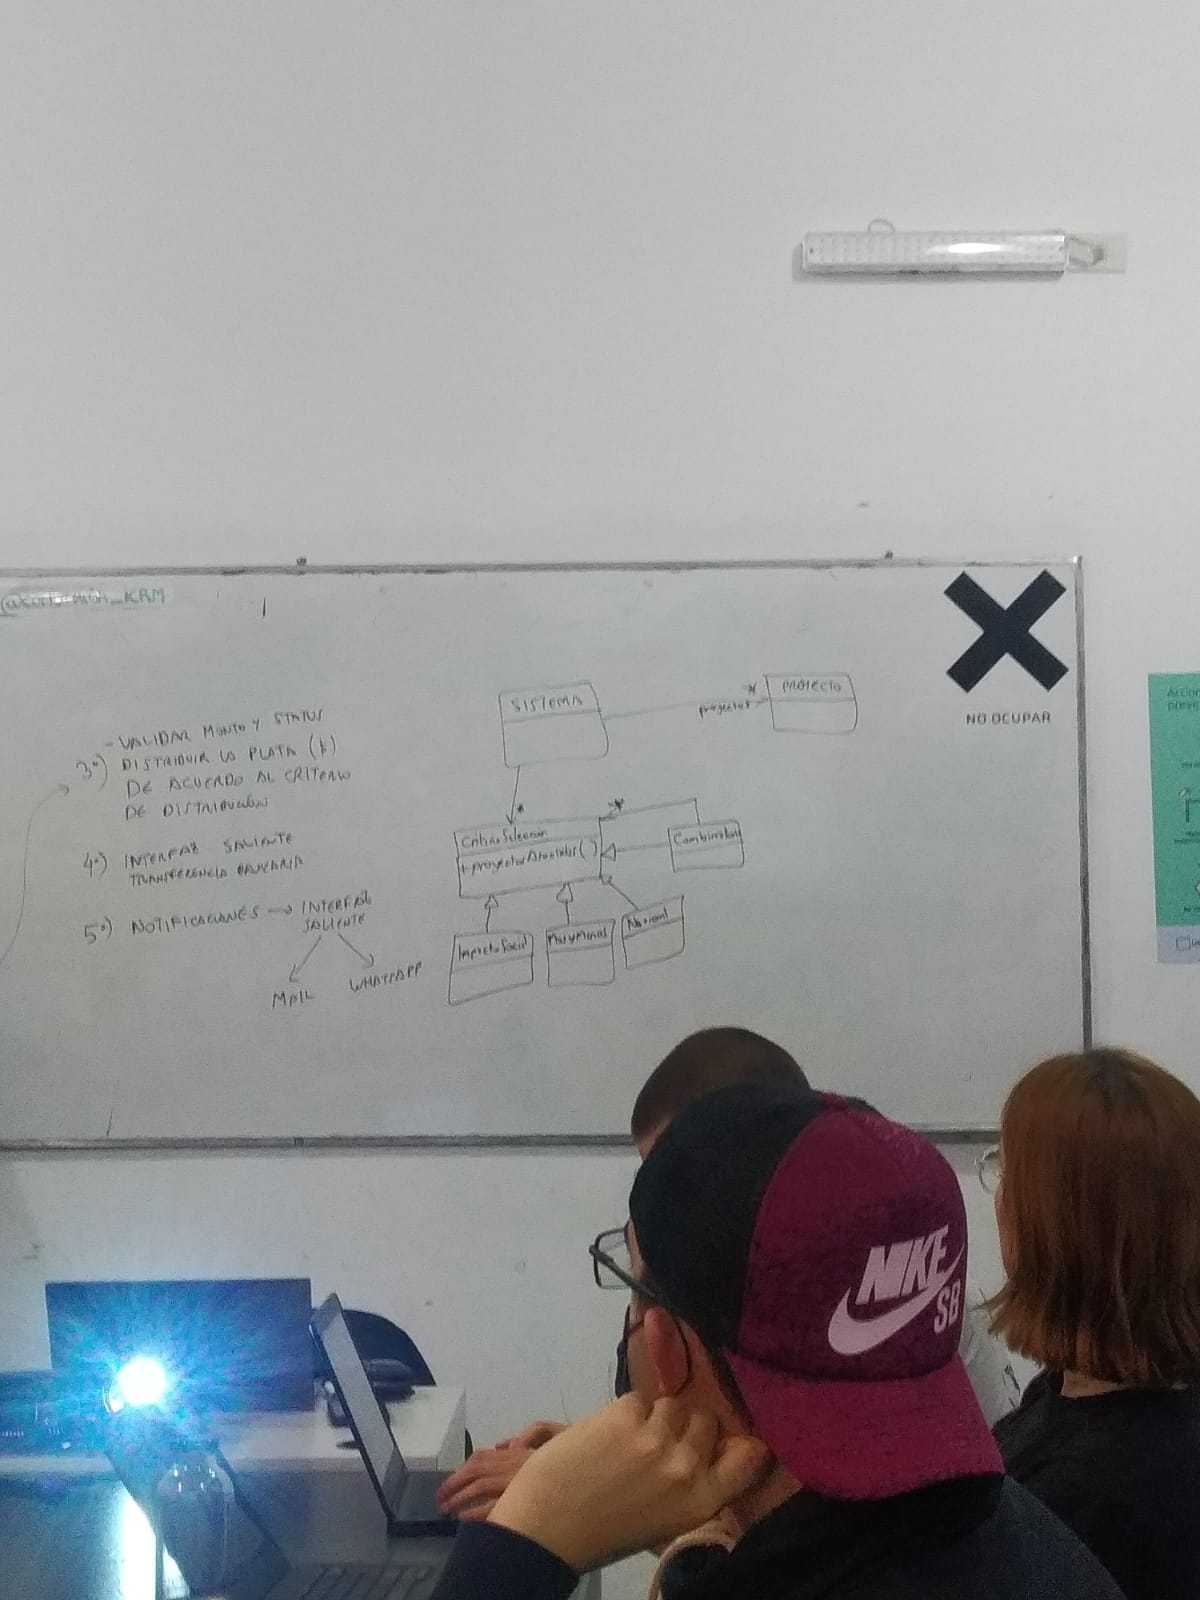 KRM
- VALIDAR MONTO Y STATUS
3°) DISTRIBUIR LA PLATA (k)
DE ACUERDO AL CRITERIO
DE DISTRIBUCIÓN
4°) INTERFAZ SALIENTE
TRANSFERENCIA BANCARIA
5°) NOTIFICACIONES → INTERFAZ
SALIENTE
MAIL
WHATSAPP
SISTEMA
*
proyectos
PROYECTO
*
*
Selección
()
Impacto Social
Nacional
NO OCUPAR
NIKE
SB